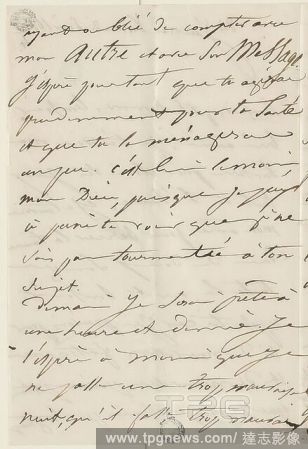 ayant oublié de compter avec
mon Autre et avec son Message
j'espère pourtant que tu agiras
prudemment pour ta Santé
et que tu la ménageras
un peu. c'est bien le moins
mon Dieu, puisque je
à te voir que je ne
sois pas tourmentée à ton
Sujet.
demain je serai prête à
une heure et demie, Je
l'espère à moins que je
ne passe une trop mauvaise
nuit qu'il fasse trop mauvais
TPG
www.tpgnews.com / 達志影像